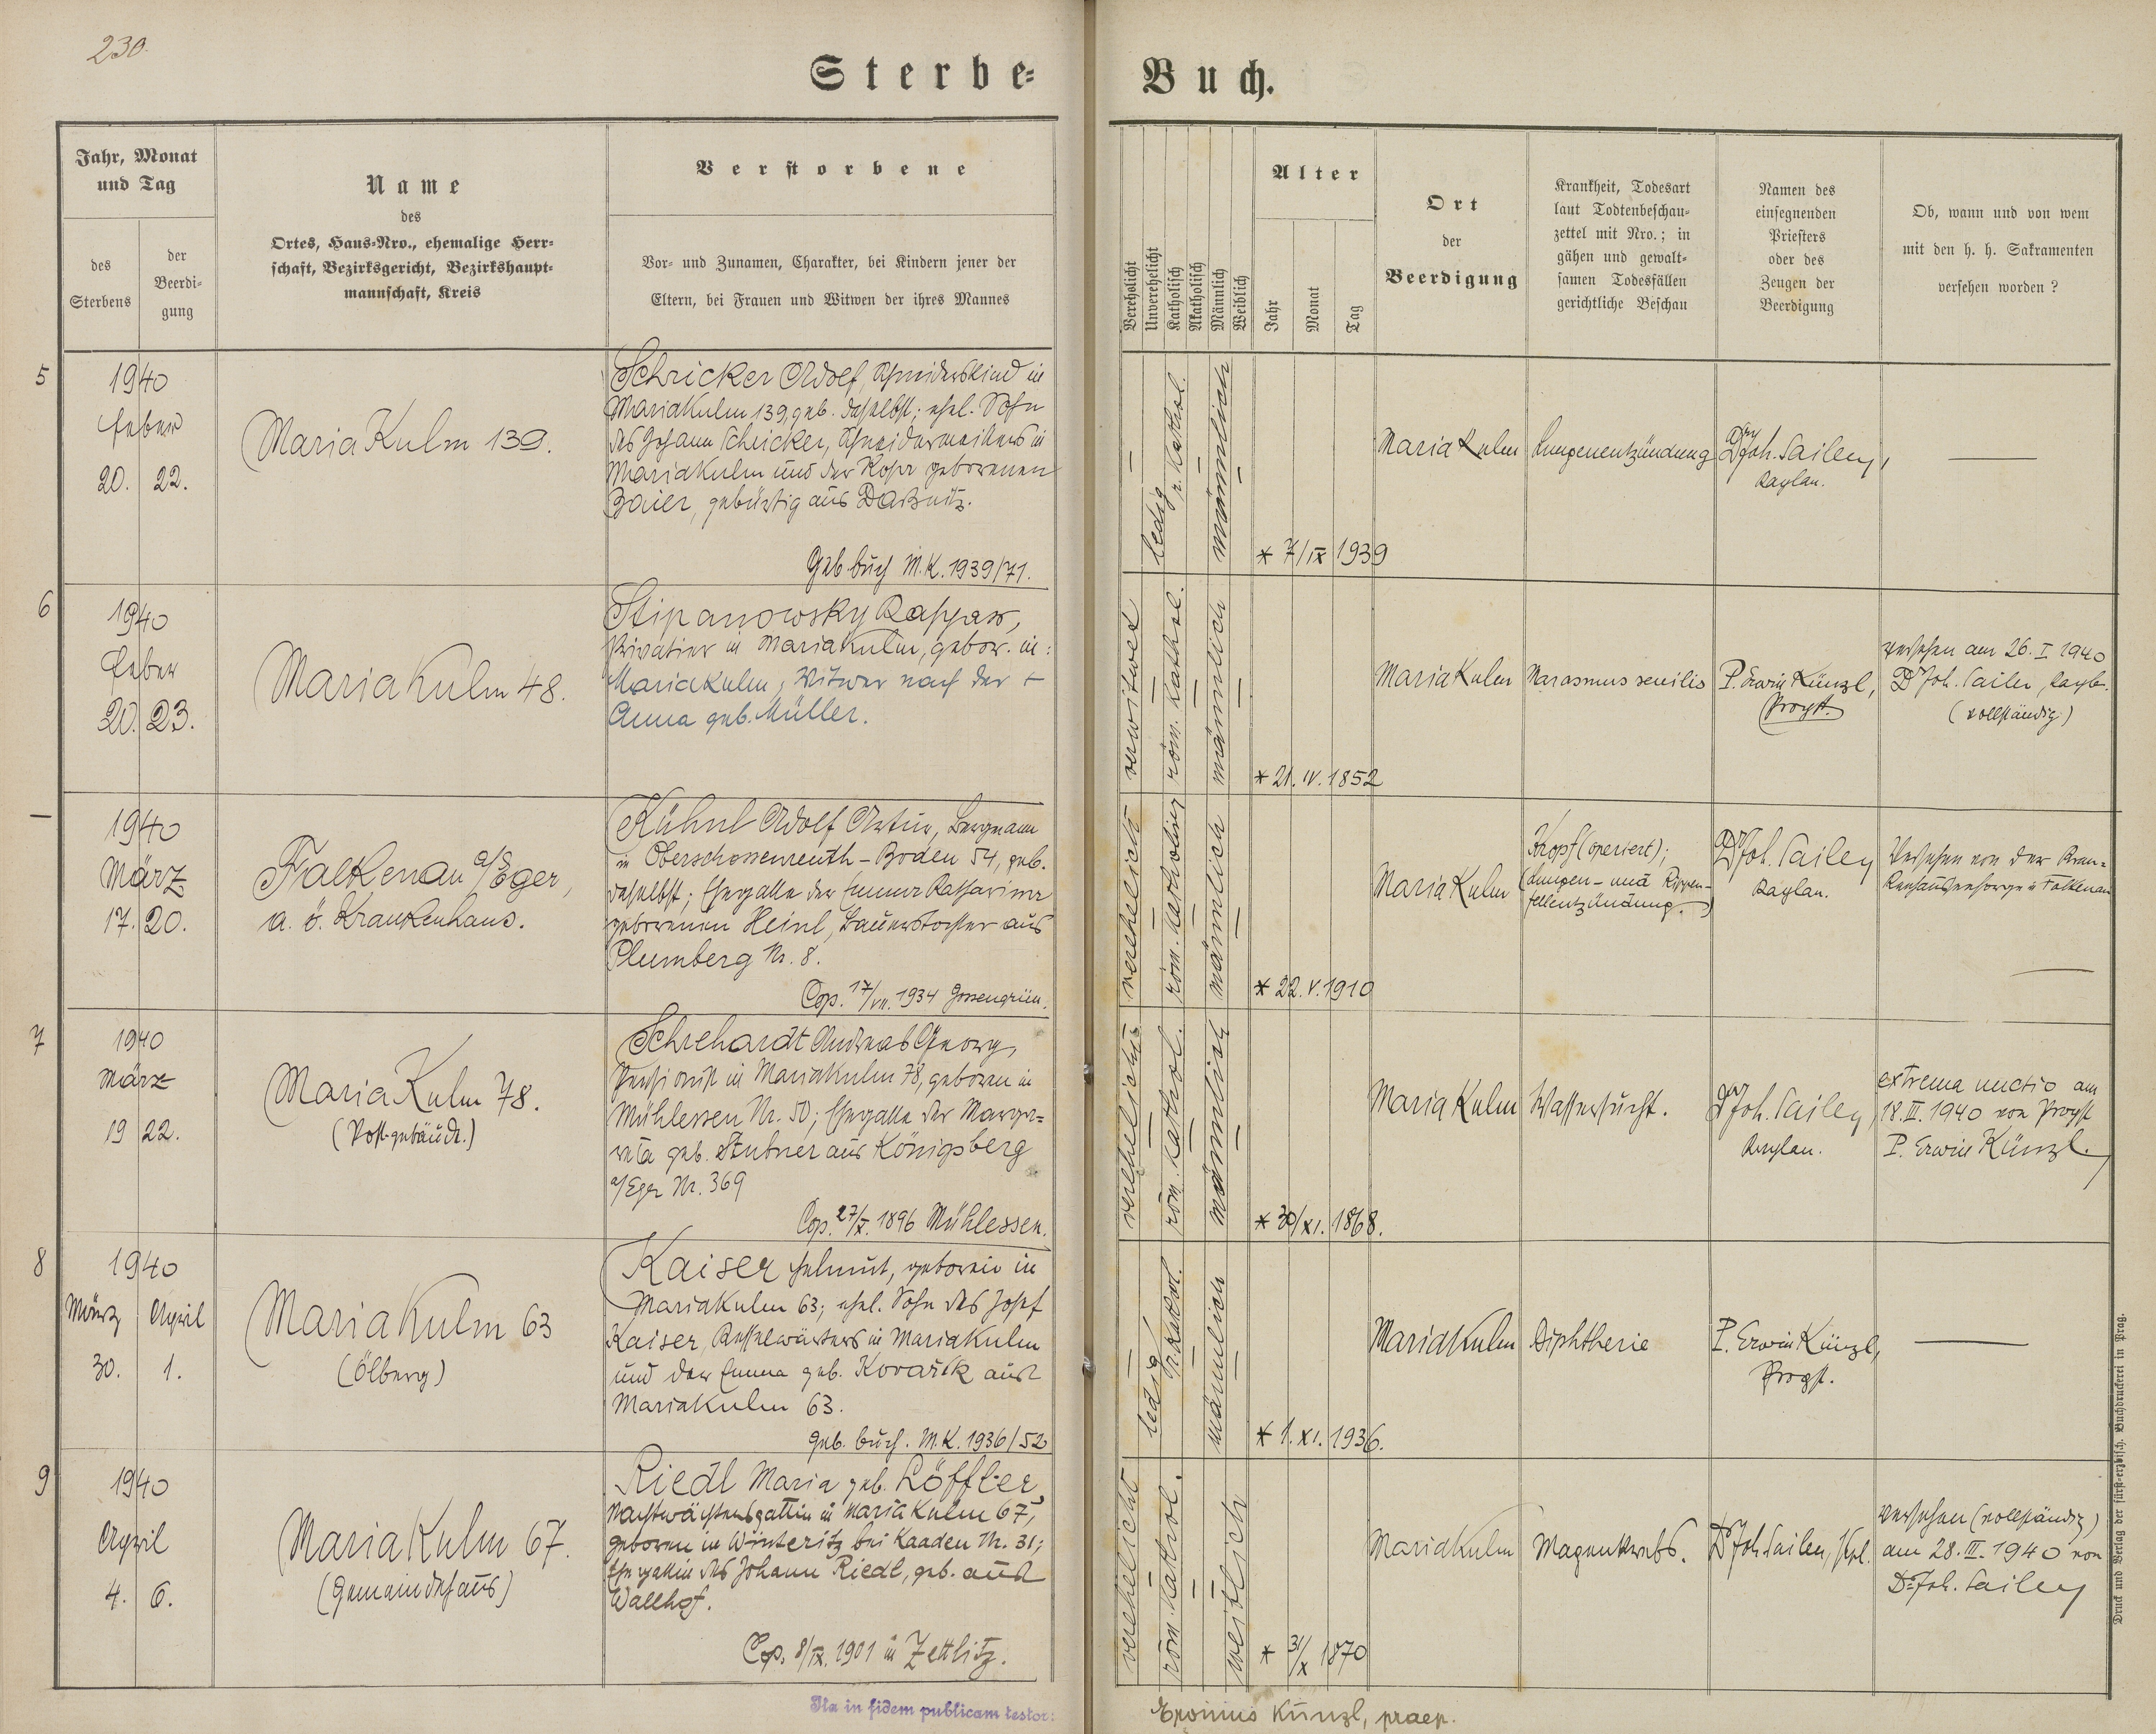 230.
Sterbe=
Buch.
Jahr, Monat
und Tag
des
Sterbens
der
Beerdi=
gung
Name
des
Ortes, Haus=Nro., ehemalige Herr=
schaft, Bezirksgericht, Bezirkshaupt=
mannschaft, Kreis
Verstorbene
Vor= und Zunamen, Charakter, bei Kindern jener der
Eltern, bei Frauen und Witwen der ihres Mannes
Verehelicht
Unverehelicht
Katholisch
Akatholisch
Männlich
Weiblich
Alter
Jahr
Monat
Tag
Ort
der
Beerdigung
Krankheit, Todesart
laut Todtenbeschau=
zettel mit Nro.; in
gähen und gewalt=
samen Todesfällen
gerichtliche Beschau
Namen des
einsegnenden
Priesters
oder des
Zeugen der
Beerdigung
Ob, wann und von wem
mit den h. h. Sakramenten
versehen worden ?
5
1940
Feber
20. 22.
Maria Kulm 139.
Schricker Adolf, Schneiderskind in
Mariakulm 139, geb. daselbst; ehel. Sohn
des Johann Schricker, Schneidermeisters in
Mariakulm und der Rosa geborenen
Baier, gebürtig aus Daßnitz.
Geb buch M.K. 1939/71.
ledig
r. kathol.
männlich
* 7/IX 1939
Maria Kulm
Lungenentzündung
Dr Joh. Sailer,
Kaplan.
6
1940
Feber
20. 23.
Maria Kulm 48.
Stipanowsky Kaspar,
Privatier in Mariakulm, gebor. in:
Mariakulm, Witwer nach der †
Anna geb. Müller.
verwitwet
röm. kathol.
männlich
* 21. IV. 1852
Maria Kulm
Marasmus senilis
P. Erwin Künzl,
Propst.
versehen am 26. I 1940
Dr Joh. Sailer, Kapl.
(vollständig)
1940
März
17. 20.
Falkenau a/Eger,
a. ö. Krankenhaus.
Kühnl Adolf Artur, Bergmann
in Oberschossenreuth - Boden 54, geb.
daselbst; Ehegatte der Emma Katharina
geborenen Heinl, Bauerstochter aus
Plumberg Nr. 8.
Cop. 17/VII. 1934 Gossengrün.
verehelicht
röm. katholisch
männlich
* 22. V. 1910
Maria Kulm
Kropf (operiert);
(Lungen- und Rippen-
fellentzündung.)
Dr Joh. Sailer
Kaplan.
Versehen von der Kran=
kenhausseelsorge in Falkenau
7
1940
März
19 22.
Maria Kulm 78.
(Postgebäude.)
Schrehardt Andreas Georg,
Pensionist in Mariakulm 78, geboren in
Mühlessen Nr. 50; Ehegatte der Marga=
reta geb. Stubner aus Königsberg
a/Eger Nr. 369
Cop. 27/X. 1896 Mühlessen.
verehelicht
röm. kathol.
männlich
* 30/XI. 1868.
Maria Kulm
Wassersucht.
Dr Joh. Sailer,
Kaplan.
extrema unctio am
18. III. 1940 von Propst
P. Erwin Künzl.
8
1940
März April
30. 1.
Maria Kulm 63
(Ölberg)
Kaiser Helmut, geboren in
Mariakulm 63; ehel. Sohn des Josef
Kaiser, Kesselwärters in Mariakulm
und der Emma geb. Kovařik aus
Mariakulm 63.
Geb. buch. M.K. 1936/52
ledig
r. kathol.
männlich
* 1. XI. 1936.
Maria Kulm
Diphtherie
P. Erwin Künzl,
Propst.
9
1940
April
4. 6.
Maria Kulm 67.
(Gemeindehaus)
Riedl Maria geb. Löffler,
Nachtwächtersgattin in Maria Kulm 67,
geboren in Winteritz bei Kaaden Nr. 31;
Ehegattin des Johann Riedl, geb. aus
Wallhof.
Cop. 8/IX. 1901 in Zettlitz.
verehelicht
röm. kathol.
weiblich
* 31/X 1870
Maria Kulm
Magenkrebs.
Dr Joh. Sailer, Kpl.
versehen (vollständig)
am 28. III. 1940 von
Dr Joh. Sailer
Ita in fidem publicam testor:
Erwinus Künzl, praep.
Druck und Verlag der fürst=erzbisch. Buchdruckerei in Prag.